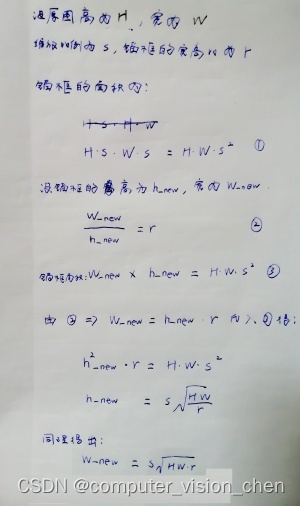 设原图高为 H ，宽为 W
缩放比例为 s ，锚框的宽高比为 r
锚框的面积为:
H·S·H·W
H·S·W·S = H·W·S² ①
设锚框的高为 h_new ，宽为 W_new .
W_new / h_new = r ②
锚框面积: W_new × h_new = H·W·S² ③
由 ② => W_new = h_new · r 代入 ③ 得:
h²_new · r = H·W·S²
h_new = S√(HW/r)
同理得出:
W_new = S√(HW·r)
CSDN @computer_vision_chen